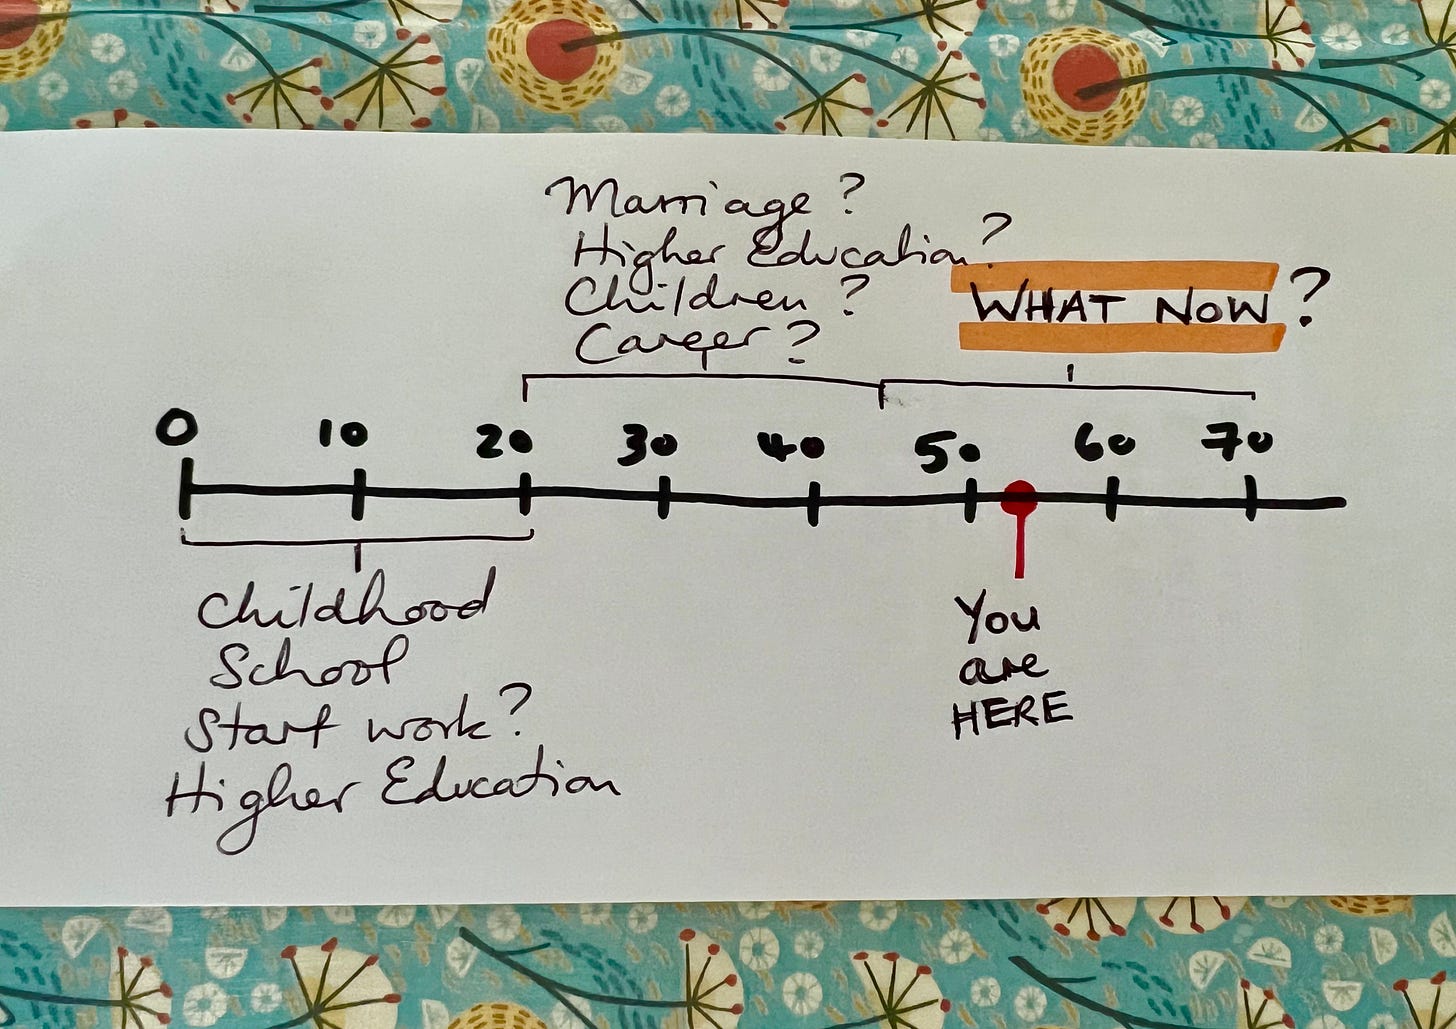 Marriage?
Higher Education?
Children?
Career?
WHAT NOW?
0 10 20 30 40 50 60 70
Childhood
School
Start work?
Higher Education
You
are
HERE